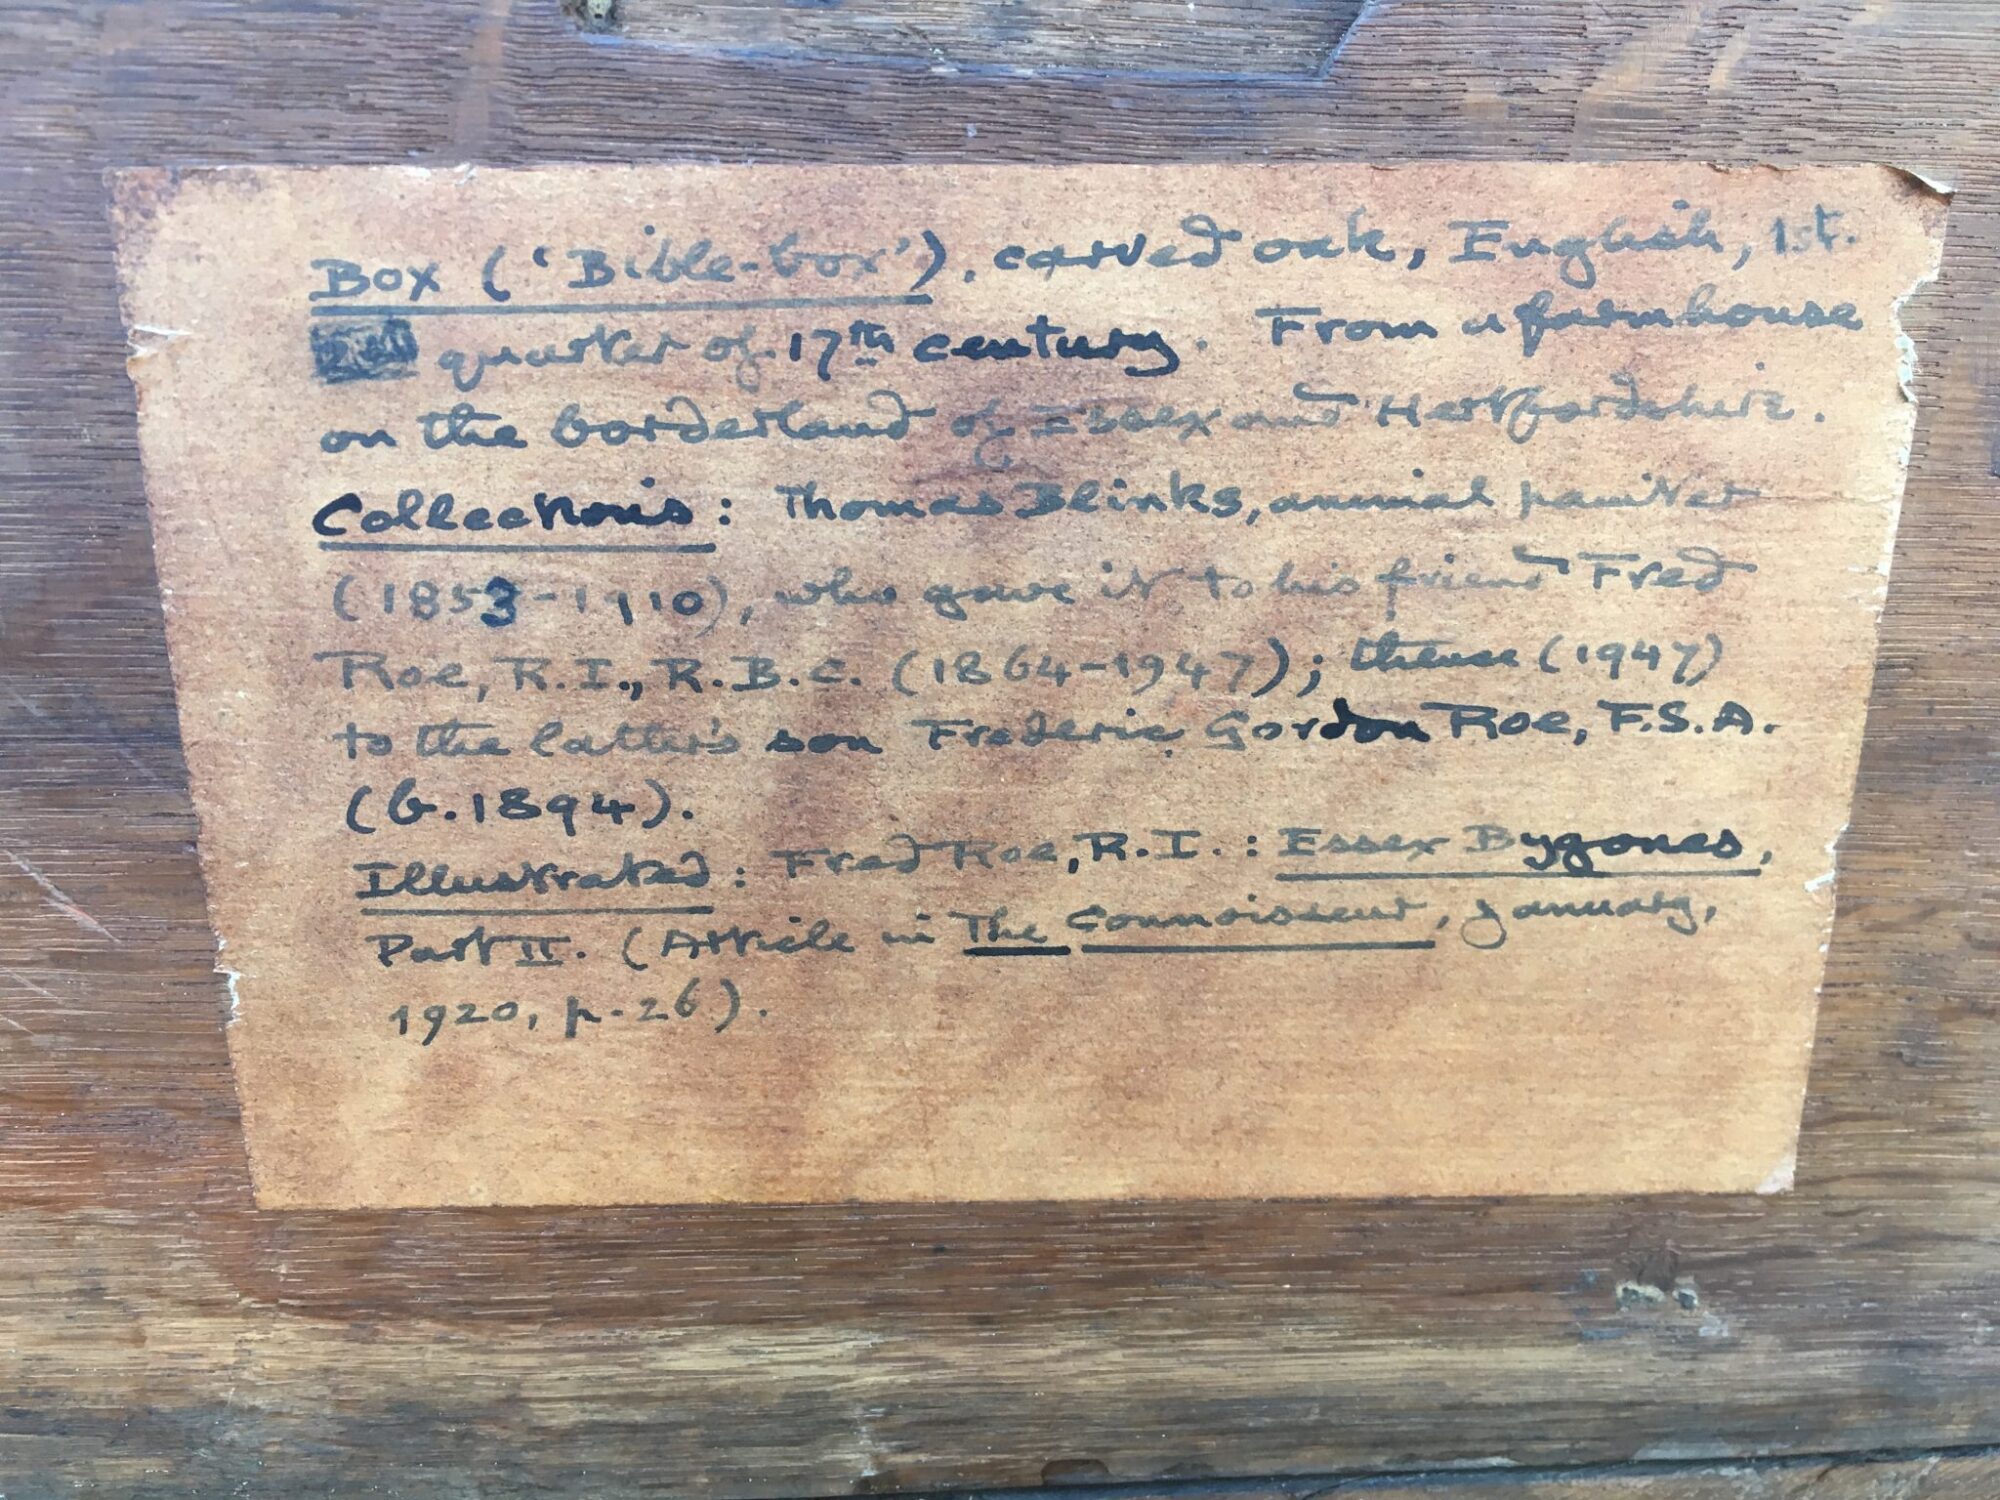 Box ('Bible-box'). carved oak, English, 1st.
quarter of 17th century. From a farmhouse
on the borderland of Essex and Hertfordshire.
Collections: Thomas Blinks, animal painter
(1853-1910), who gave it to his friend Fred
Roe, R.I., R.B.C. (1864-1947); thence (1947)
to the latter's son Frederic Gordon Roe, F.S.A.
(b.1894).
Illustrated: Fred Roe, R.I.: Essex Bygones,
Part II. (Article in The Connoisseur, January,
1920, p.26).